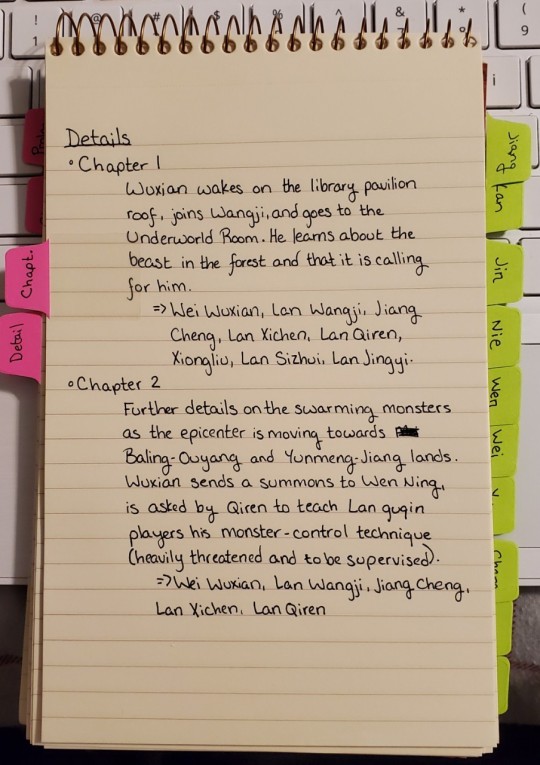 Details
• Chapter 1
Wuxian wakes on the library pavilion
roof, joins Wangji, and goes to the
Underworld Room. He learns about the
beast in the forest and that it is calling
for him.
=> Wei Wuxian, Lan Wangji, Jiang
Cheng, Lan Xichen, Lan Qiren,
Xiongliu, Lan Sizhui, Lan Jingyi.
• Chapter 2
Further details on the swarming monsters
as the epicenter is moving towards
Baling-Ouyang and Yunmeng-Jiang lands.
Wuxian sends a summons to Wen Ning,
is asked by Qiren to teach Lan guqin
players his monster-control technique
(heavily threatened and to be supervised).
=> Wei Wuxian, Lan Wangji, Jiang Cheng,
Lan Xichen, Lan Qiren
Chapt.
Detail
Jiang
Lan
Jin
Nie
Wen
Wei
! 1
@
#
$
%
^
&
*
( 9
i